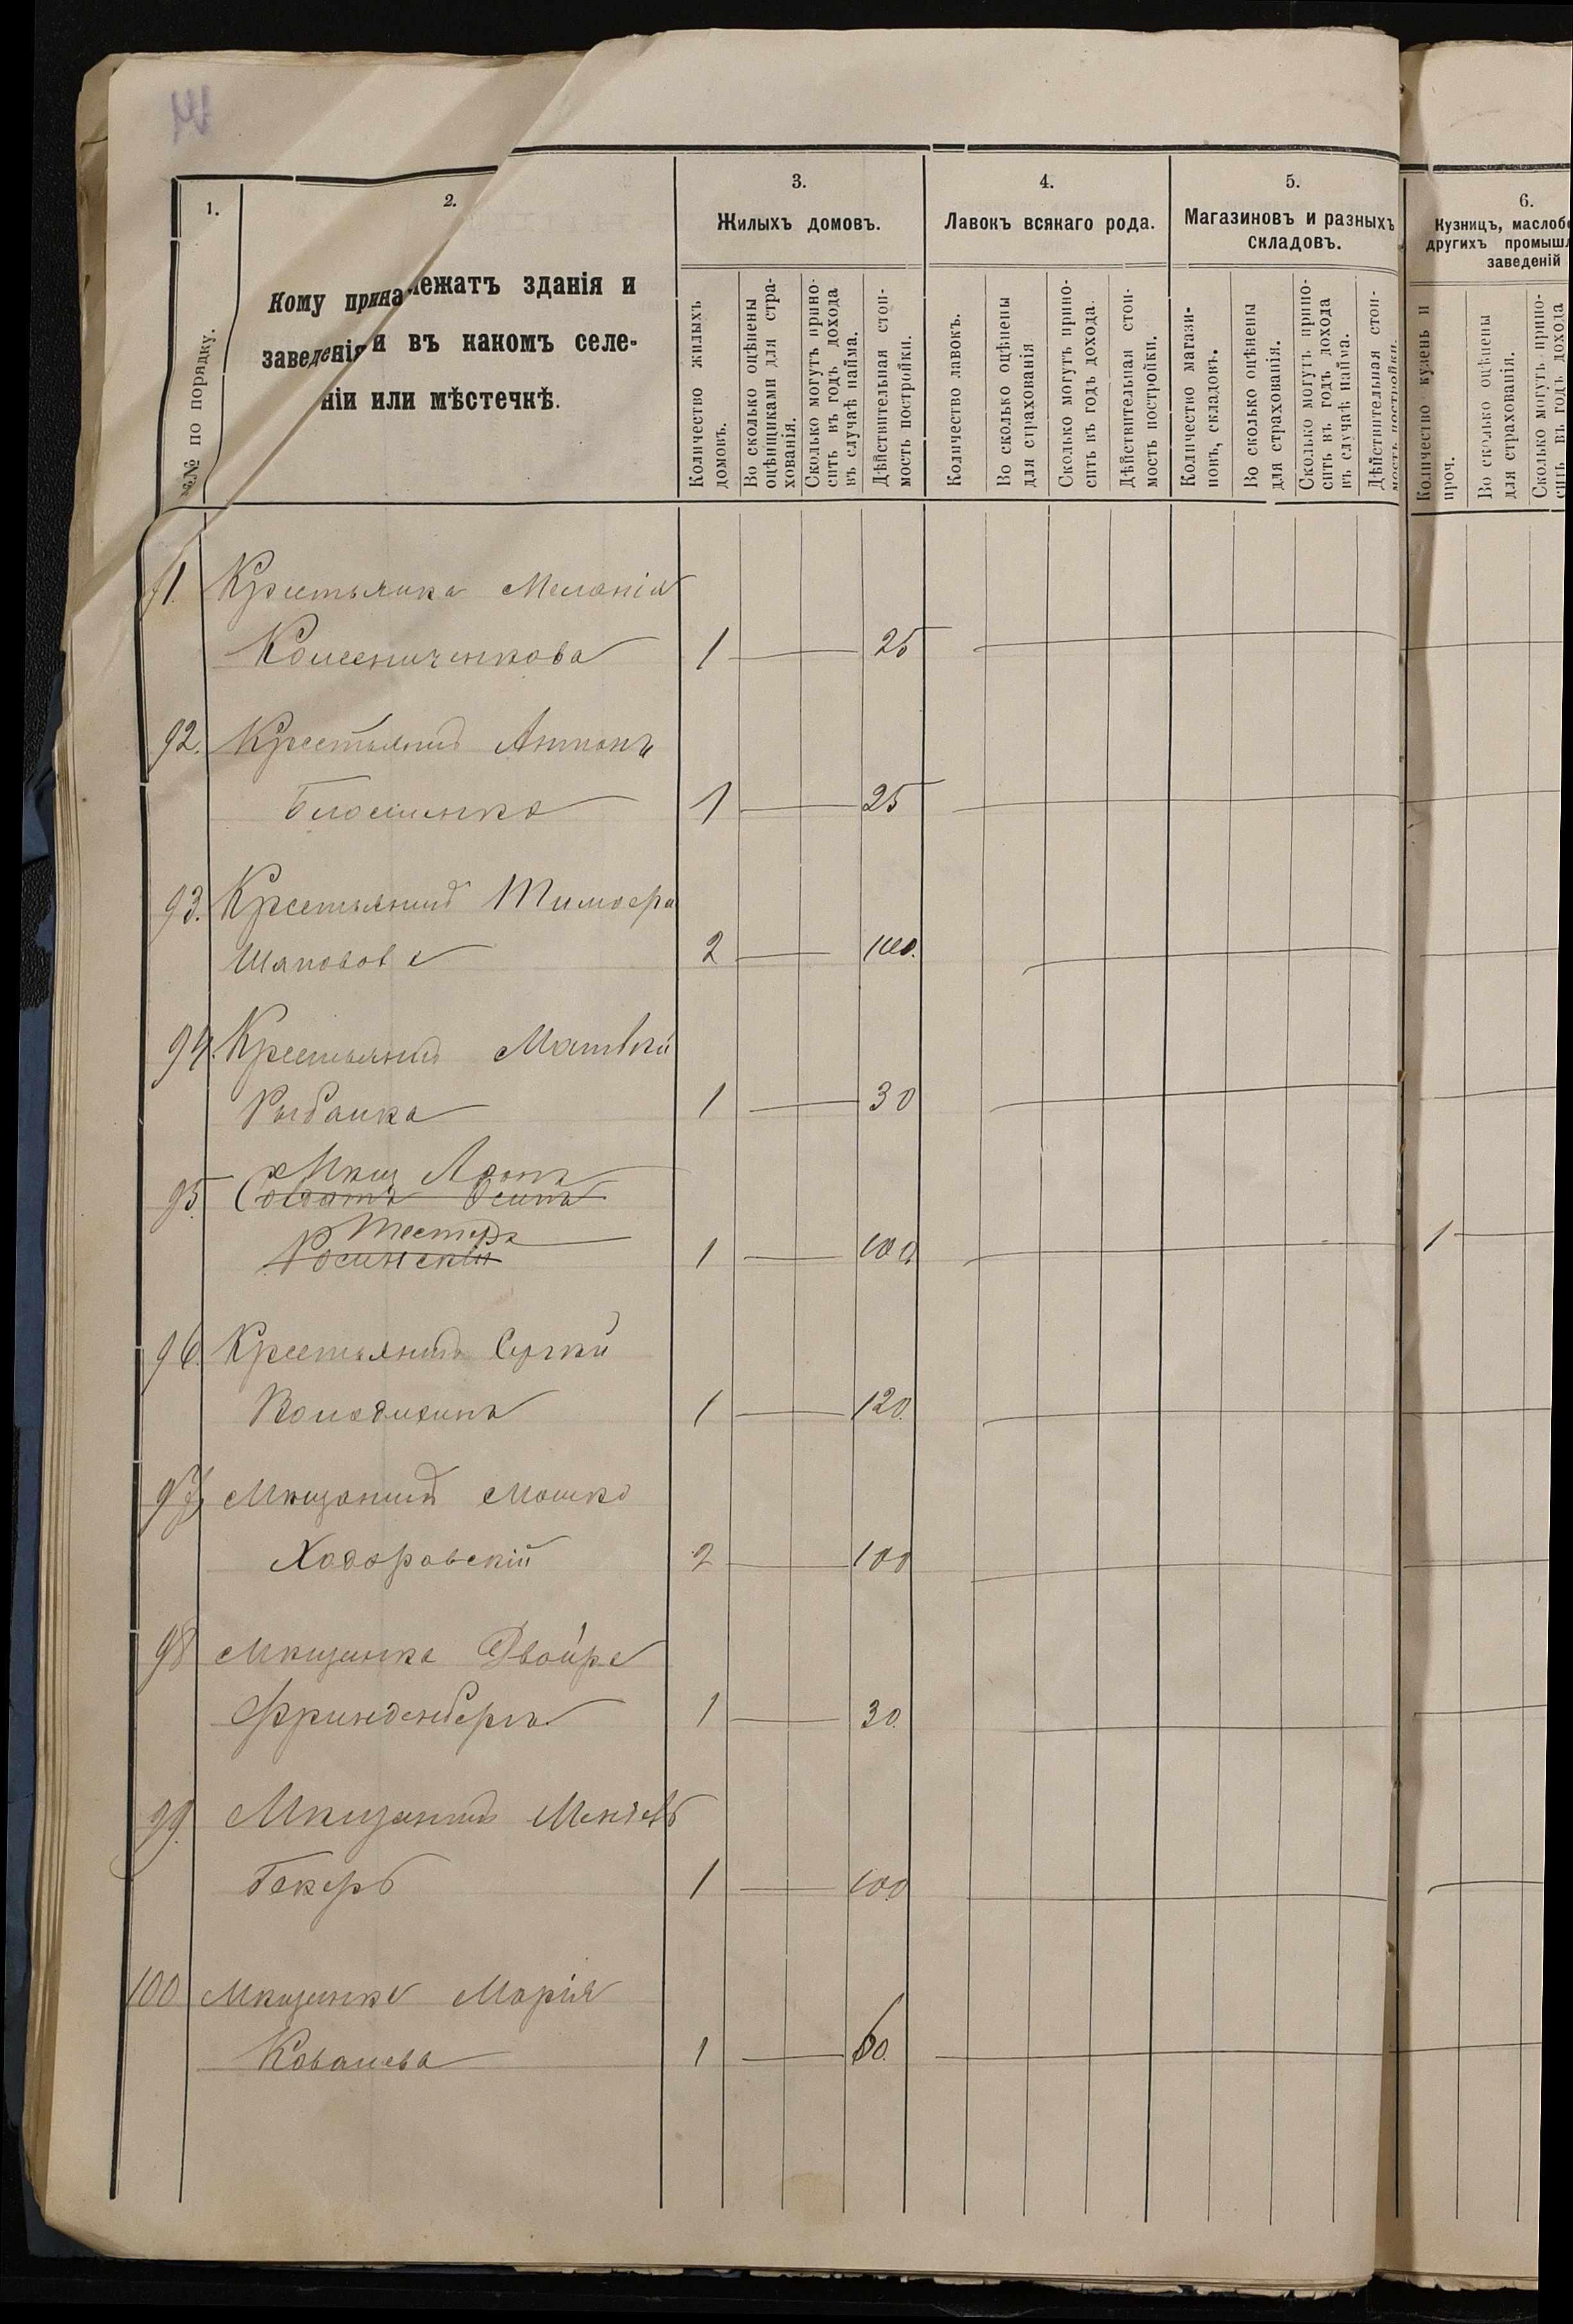 1.
2.
3.
4.
5.
6.
№№ по порядку.
Кому принадлежатъ зданія и
заведенія и въ какомъ селе-
ніи или мѣстечкѣ.
Жилыхъ домовъ.
Количество жилыхъ
домовъ.
Во сколько оцѣнены
оцѣнщиками для стра-
хованія.
Сколько могутъ прино-
сить въ годъ дохода
въ случаѣ найма.
Дѣйствительная стои-
мость постройки.
Лавокъ всякаго рода.
Количество лавокъ.
Во сколько оцѣнены
для страхованія
Сколько могутъ прино-
сить въ годъ дохода.
Дѣйствительная стои-
мость постройки.
Магазиновъ и разныхъ
складовъ.
Количество магази-
новъ, складовъ.
Во сколько оцѣнены
для страхованія.
Сколько могутъ прино-
сить въ годъ дохода
въ случаѣ найма.
Дѣйствительная стои-
мость постройки.
Кузницъ, маслобо
другихъ промышл
заведеній
Количество кузень и
проч.
Во сколько оцѣнены
для страхованія.
Сколько могутъ прино-
сить въ годъ дохода
91. Крестьянка Меланія
Колесниченкова 1 25
92. Крестьянинъ Антонъ
1 25
93. Крестьянинъ Тимофей
Шаповал 2 100.
94. Крестьянинъ Матвѣй
Рыбалка 1 30
Мѣщ
95 Солдатъ Осипъ
Тестеръ
Росинскій 1 100 1
96. Крестьянинъ Сергѣй
Володихинъ 1 120.
97. Мѣщанинъ Мошко
Ходоровскій 2 100
98 Мѣщанка Двойра
Фринденбергъ 1 30.
99. Мѣщанинъ
Бекеръ 1 100
100 Мѣщанка Марія
Ковалева 1 60.